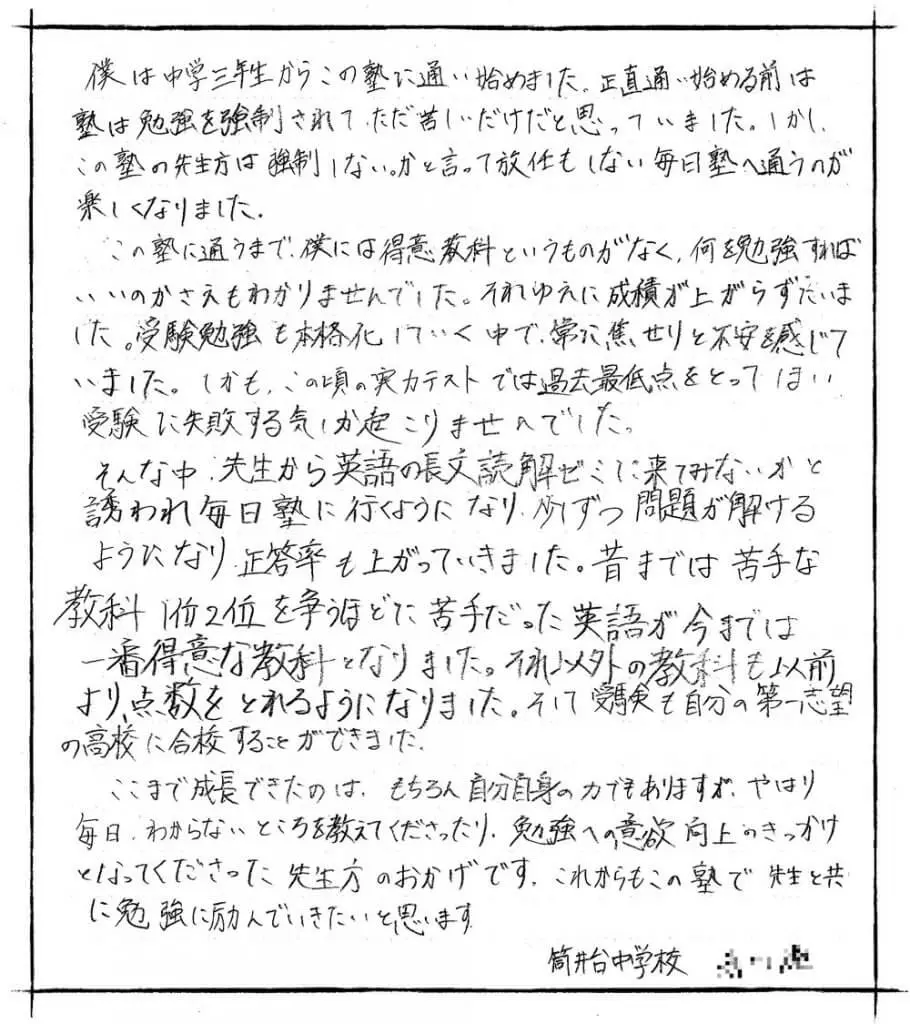 僕は中学三年生からこの塾に通い始めました。正直通い始める前は
塾は勉強を強制されて、ただ苦しいだけだと思っていました。しかし、
この塾の先生方は強制しない。かと言って放任もしない毎日塾へ通うのが
楽しくなりました。
この塾に通うまで、僕には得意教科というものがなく、何を勉強すれば
いいのかさえもわかりませんでした。それゆえに成績が上がらずにいま
した。受験勉強も本格化していく中で、常に焦せりと不安を感じて
いました。しかも、この頃の実力テストでは過去最低点をとってしまい
受験に失敗する気しか起こりませんでした。
そんな中、先生から英語の長文読解ゼミに来てみないかと
誘われ毎日塾に行くようになり、少しずつ問題が解ける
ようになり正答率も上がっていきました。昔までは苦手な
教科1位2位を争うほどに苦手だった英語が今までは
一番得意な教科となりました。それ以外の教科も以前
より、点数をとれるようになりました。そして受験も自分の第一志望
の高校に合校することができました。
ここまで成長できたのは、もちろん自分自身の力でもありますが、やはり
毎日、わからないところを教えてくださったり、勉強への意欲向上のきっかけ
となってくださった先生方のおかげです。これからもこの塾で先生と共
に勉強に励んでいきたいと思います
筒井台中学校